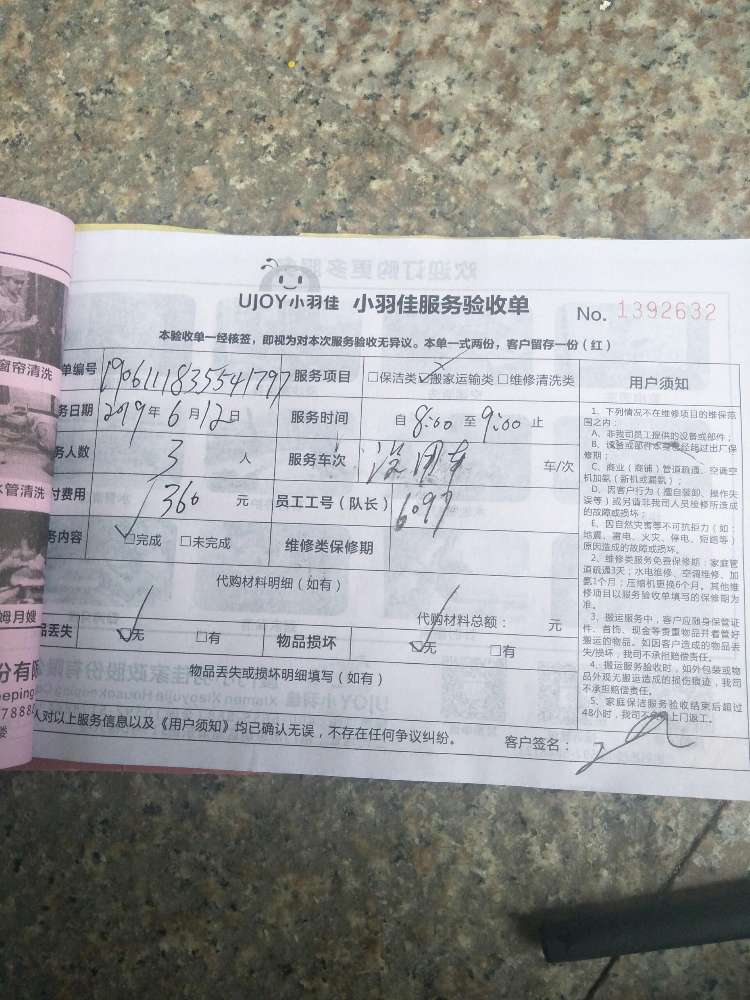 欢迎订购更多服务
UJOY小羽佳 小羽佳服务验收单 No. 1392632
本验收单一经核签，即视为对本次服务验收无异议。本单一式两份，客户留存一份（红）
单编号 1906111835541797 服务项目 □保洁类 ☑搬家运输类 □维修清洗类
务日期 2019年6月12日 服务时间 自 8:00 至 9:00 止
务人数 3 人 服务车次 车/次
付费用 360 元 员工工号（队长） 6097
务内容 ☑完成 □未完成 维修类保修期
代购材料明细（如有）
代购材料总额： 元
品丢失 ☑无 □有 物品损坏 ☑无 □有
物品丢失或损坏明细填写（如有）
人对以上服务信息以及《用户须知》均已确认无误，不存在任何争议纠纷。 客户签名：
用户须知
1、下列情况不在维修项目的维保范
围之内：
A、非我司员工提供的设备或部件；
B、设备或部件本身已经超过出厂保
修期；
C、商业（商铺）管道疏通、空调空
机加氨（新机或漏氨）；
D、因客户行为（擅自装卸、操作失
误等）或另请非我司人员检修所造成
的故障或损坏；
E、因自然灾害等不可抗拒力（如：
地震、雷电、火灾、停电、短路等）
原因造成的故障或损坏。
2、维修类服务免费保修期：家庭管
道疏通3天；水电维修、空调维修、加
氨1个月；压缩机更换6个月。其他维
修项目以服务验收单填写的保修期为
准。
3、搬运服务中，客户应随身保管证
件、首饰、现金等贵重物品并看管好
搬运的物品。如因客户造成的物品丢
失/损坏，我司不承担赔偿责任。
4、搬运服务验收时，如外包装或物
品外观无搬运造成的损伤痕迹，我司
不承担赔偿责任。
5、家庭保洁服务验收结束后超过
48小时，我司不会上门返工。
窗帘清洗
水管清洗
姆月嫂
份有限
eeping
78885
楼